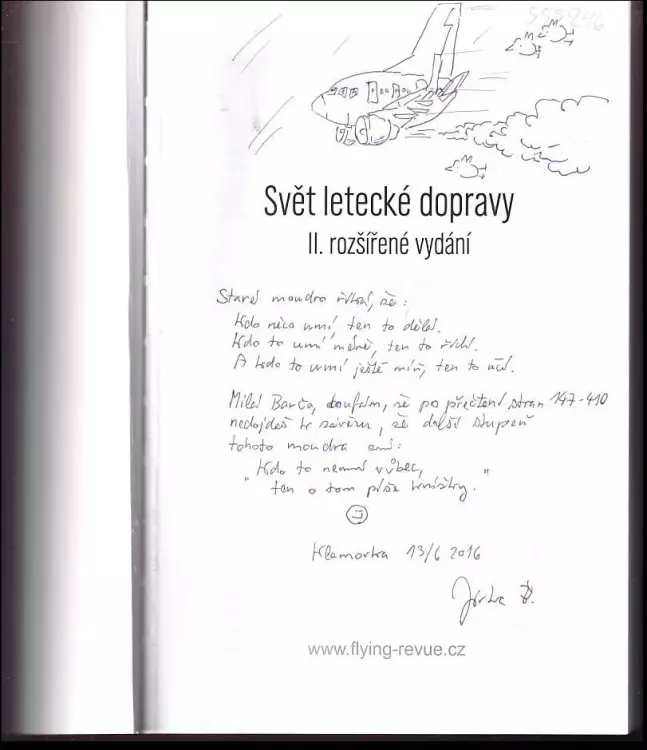 Svět letecké dopravy
II. rozšířené vydání
Staré moudro říká, že:
Kdo něco umí, ten to dělá.
Kdo to umí méně, ten to řídí.
A kdo to umí ještě míň, ten to učí.
Milá Barčo, doufám, že po přečtení stran 147-410
nedojdeš k závěru, že další stupeň
tohoto moudra zní:
Kdo to neumí vůbec,
" ten o tom píše knížky. "
Klamovka 13/6 2016
www.flying-revue.cz